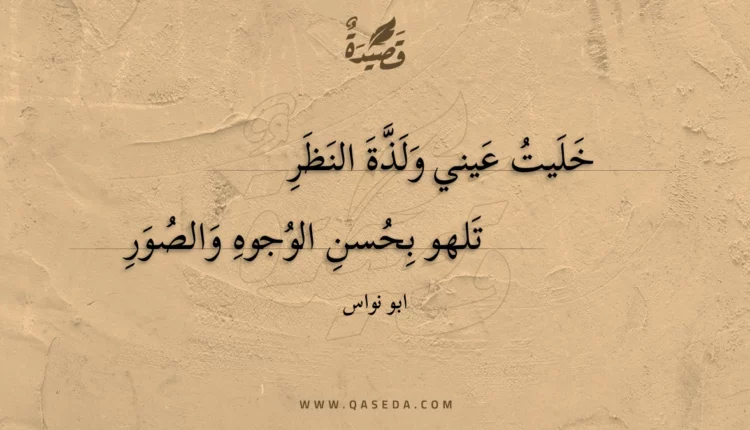 قَصِيدَةٌ
خَلَيتُ عَيني وَلَذَّةَ النَظَرِ
تَلهو بِحُسنِ الوُجوهِ وَالصُوَرِ
ابو نواس
WWW.QASEDA.COM